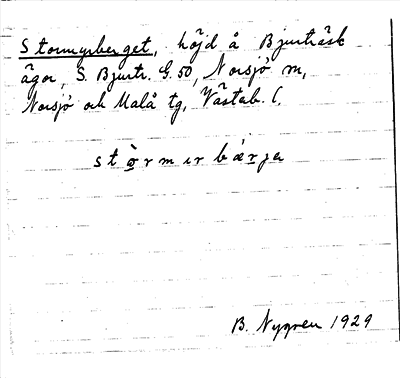 Stormyrberget, höjd å Bjurträsk
ägor, S. Bjurtr. G. 50, Norsjö sn,
Norsjö och Malå tg, Västerb. l.
stòrmırbǽrja
B. Nygren 1929